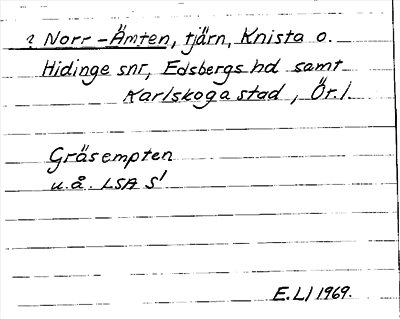 ? Norr-Ämten, tjärn, Knista o.
Hidinge snr, Edsbergs hd samt
Karlskoga stad, Ör. l.
Gräsempten
u.å. LSA S'
E.LJ 1969.